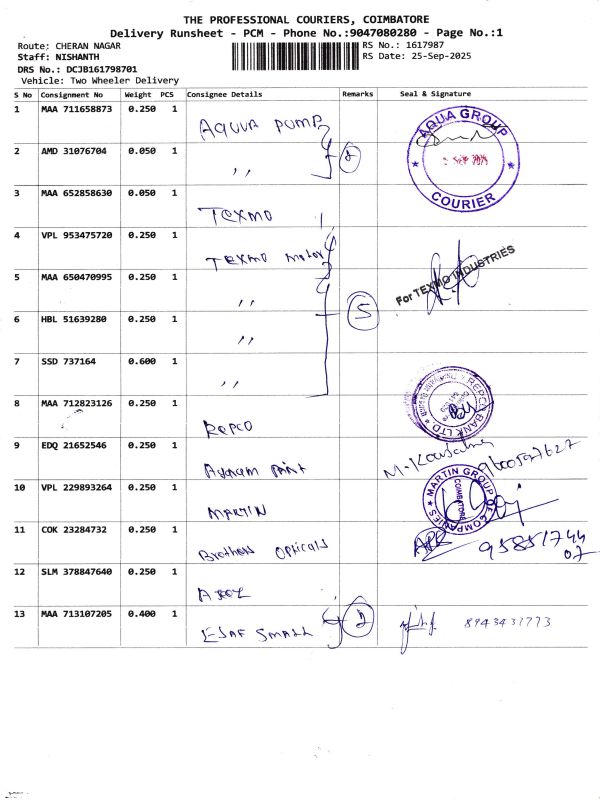 THE PROFESSIONAL COURIERS, COIMBATORE
Delivery Runsheet - PCM - Phone No.:9047080280 - Page No.:1
Route: CHERAN NAGAR
RS No.: 1617987
Staff: NISHANTH
RS Date: 25-Sep-2025
DRS No.: DCJB161798701
Vehicle: Two Wheeler Delivery
S No Consignment No Weight PCS Consignee Details Remarks Seal & Signature
1 MAA 711658873 0.250 1 AQUA PUMP
AQUA GROUP COURIER
2 AMD 31076704 0.050 1 ,,
3 MAA 652858630 0.050 1 TEXMO
4 VPL 953475720 0.250 1 TEXMO Motor
For TEXMO INDUSTRIES
5 MAA 650470995 0.250 1 ,,
5
6 HBL 51639280 0.250 1 ,,
7 SSD 737164 0.600 1 ,,
8 MAA 712823126 0.250 1 REPCO
REPCO BANK LTD
9 EDQ 21652546 0.250 1 Paint
9600597627
10 VPL 229893264 0.250 1 MARTIN
MARTIN GROUP OF COMPANIES COIMBATORE
11 COK 23284732 0.250 1 Brothers Opticals
9585174407
12 SLM 378847640 0.250 1
13 MAA 713107205 0.400 1 ESAF SMALL
2
8943431773